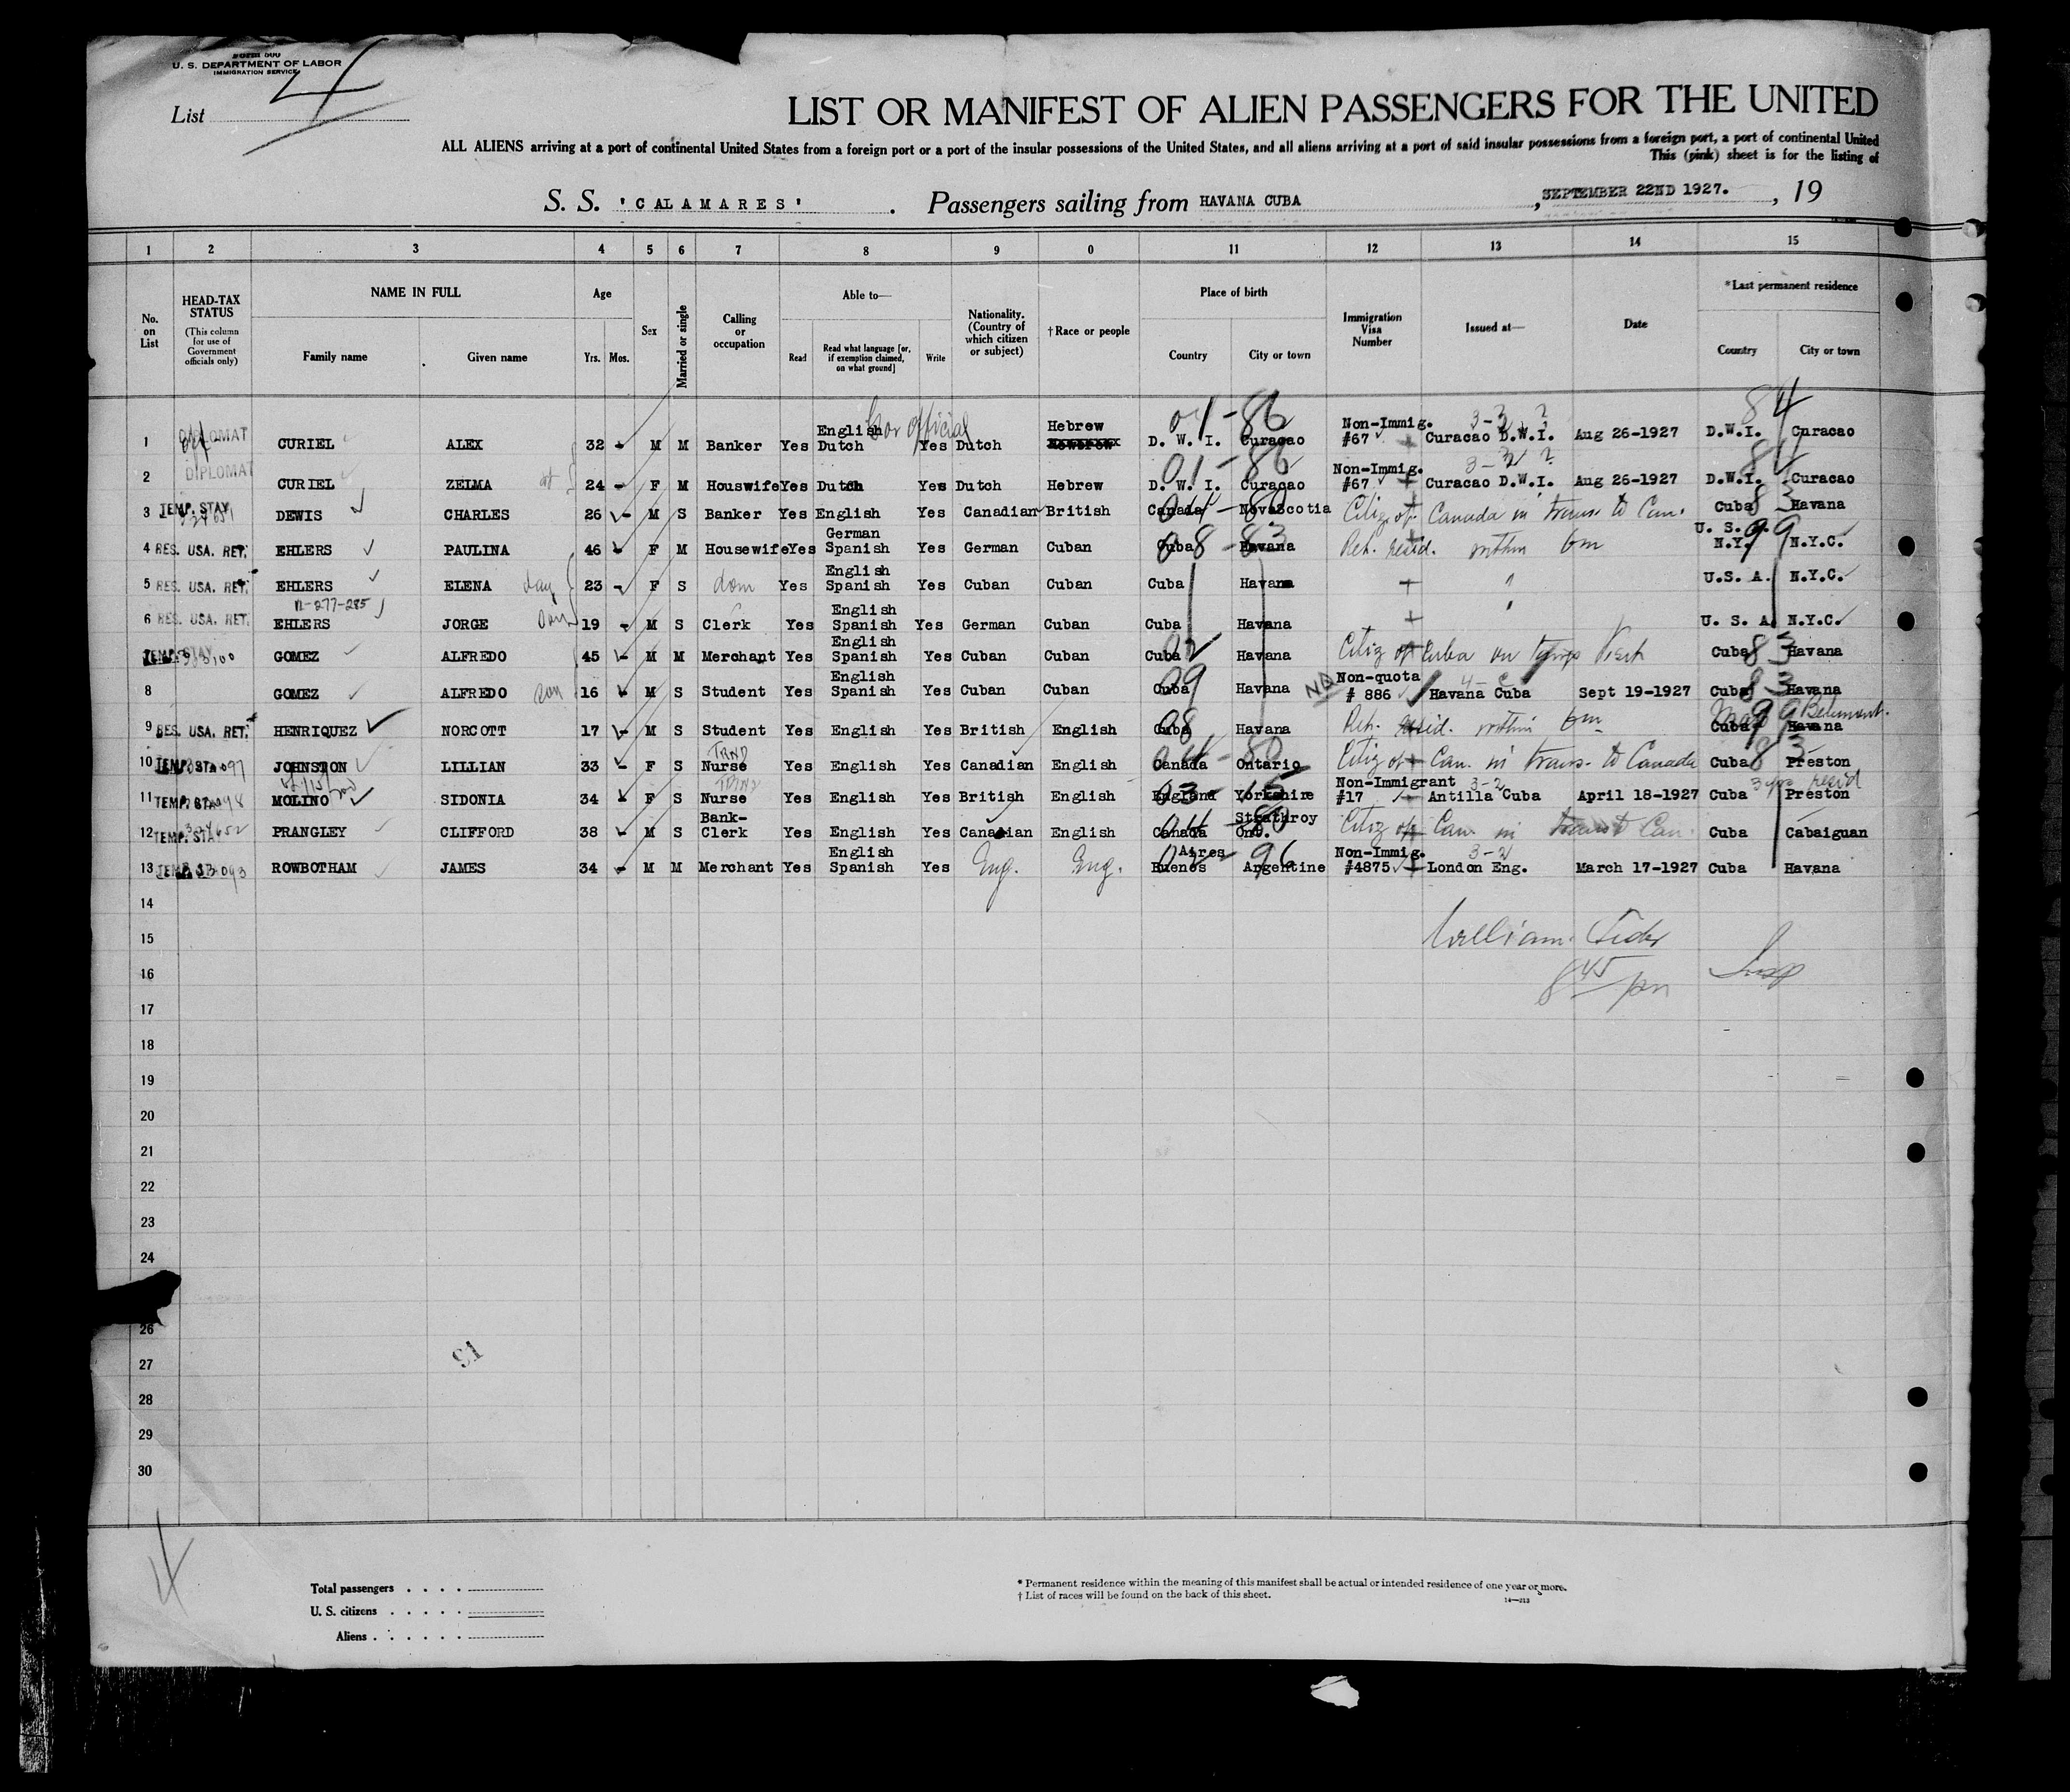 U. S. DEPARTMENT OF LABOR
IMMIGRATION SERVICE
List 4
LIST OR MANIFEST OF ALIEN PASSENGERS FOR THE UNITED
ALL ALIENS arriving at a port of continental United States from a foreign port or a port of the insular possessions of the United States, and all aliens arriving at a port of said insular possessions from a foreign port, a port of continental United
This (pink) sheet is for the listing of
S. S. 'CALAMARES' . Passengers sailing from HAVANA CUBA , SEPTEMBER 22ND 1927. , 19
1 2 3 4 5 6 7 8 9 0 11 12 13 14 15
No. on List
HEAD-TAX STATUS
(This column for use of Government officials only)
NAME IN FULL
Family name Given name
Age
Yrs. Mos.
Sex
Married or single
Calling or occupation
Able to—
Read Read what language [or, if exemption claimed, on what ground] Write
Nationality. (Country of which citizen or subject)
†Race or people
Place of birth
Country City or town
Immigration Visa Number
Issued at—
Date
*Last permanent residence
Country City or town
1 DIPLOMAT CURIEL ALEX 32 - M M Banker Yes English Dutch Yes Dutch Hebrew D. W. I. Curacao Non-Immig. #67 Curacao D.W.I. Aug 26-1927 D.W.I. Curacao
Gov official 01-86 3-2 ? 84
2 DIPLOMAT CURIEL ZELMA 24 - F M Houswife Yes Dutch Yes Dutch Hebrew D. W. I. Curacao Non-Immig. #67 Curacao D.W.I. Aug 26-1927 D.W.I. Curacao
01-86 3-2 ? 84
3 TEMP. STAY DEWIS CHARLES 26 - M S Banker Yes English Yes Canadian British Canada NovaScotia Citiz of Canada in trans to Can. Cuba Havana
04-80 83
4 RES. USA. RET. EHLERS PAULINA 46 F M Housewife Yes German Spanish Yes German Cuban Cuba Havana Ret. resid. within 6m U. S. A. N.Y. N.Y.C.
08-83 99
5 RES. USA. RET. EHLERS ELENA 23 - F S dom Yes English Spanish Yes Cuban Cuban Cuba Havana " U.S. A. N.Y.C.
6 RES. USA. RET. EHLERS JORGE 19 - M S Clerk Yes English Spanish Yes German Cuban Cuba Havana " U. S. A. N.Y.C.
7 TEMP. STAY GOMEZ ALFREDO 45 - M M Merchant Yes English Spanish Yes Cuban Cuban Cuba Havana Citiz of Cuba on temp Visit Cuba Havana
02 83
8 GOMEZ ALFREDO son 16 - M S Student Yes English Spanish Yes Cuban Cuban Cuba Havana NQ Non-quota # 886 Havana Cuba Sept 19-1927 Cuba Havana
09 83
9 RES. USA. RET. HENRIQUEZ NORCOTT 17 - M S Student Yes English Yes British English Cuba Havana Ret. resid. within 6m Cuba Havana
08 99 Belmont.
10 TEMP. STAY JOHNSTON LILLIAN 33 - F S TRND Nurse Yes English Yes Canadian English Canada Ontario Citiz of Can. in trans. to Canada Cuba Preston
04-80 83
11 TEMP. STAY MOLINO SIDONIA 34 - F S TRND Nurse Yes English Yes British English England Yorkshire Non-Immigrant #17 Antilla Cuba April 18-1927 Cuba Preston
03-15 3-2 3 yrs resid
12 TEMP. STAY PRANGLEY CLIFFORD 38 - M S Bank-Clerk Yes English Yes Canadian English Canada Strathroy Ont. Citiz of Can. in trans to Can. Cuba Cabaiguan
04-80
13 TEMP. ROWBOTHAM JAMES 34 - M M Merchant Yes English Spanish Yes Eng. Eng. Buenos Aires Argentine Non-Immig. #4875 London Eng. March 17-1927 Cuba Havana
02-96 3-2
14
15 William
16 8 45 pm Insp
17
18
19
20
21
22
23
24
26
27
28
29
30
91
4
Total passengers . . . .
U. S. citizens . . . . .
Aliens . . . . . .
* Permanent residence within the meaning of this manifest shall be actual or intended residence of one year or more.
† List of races will be found on the back of this sheet.
14—213